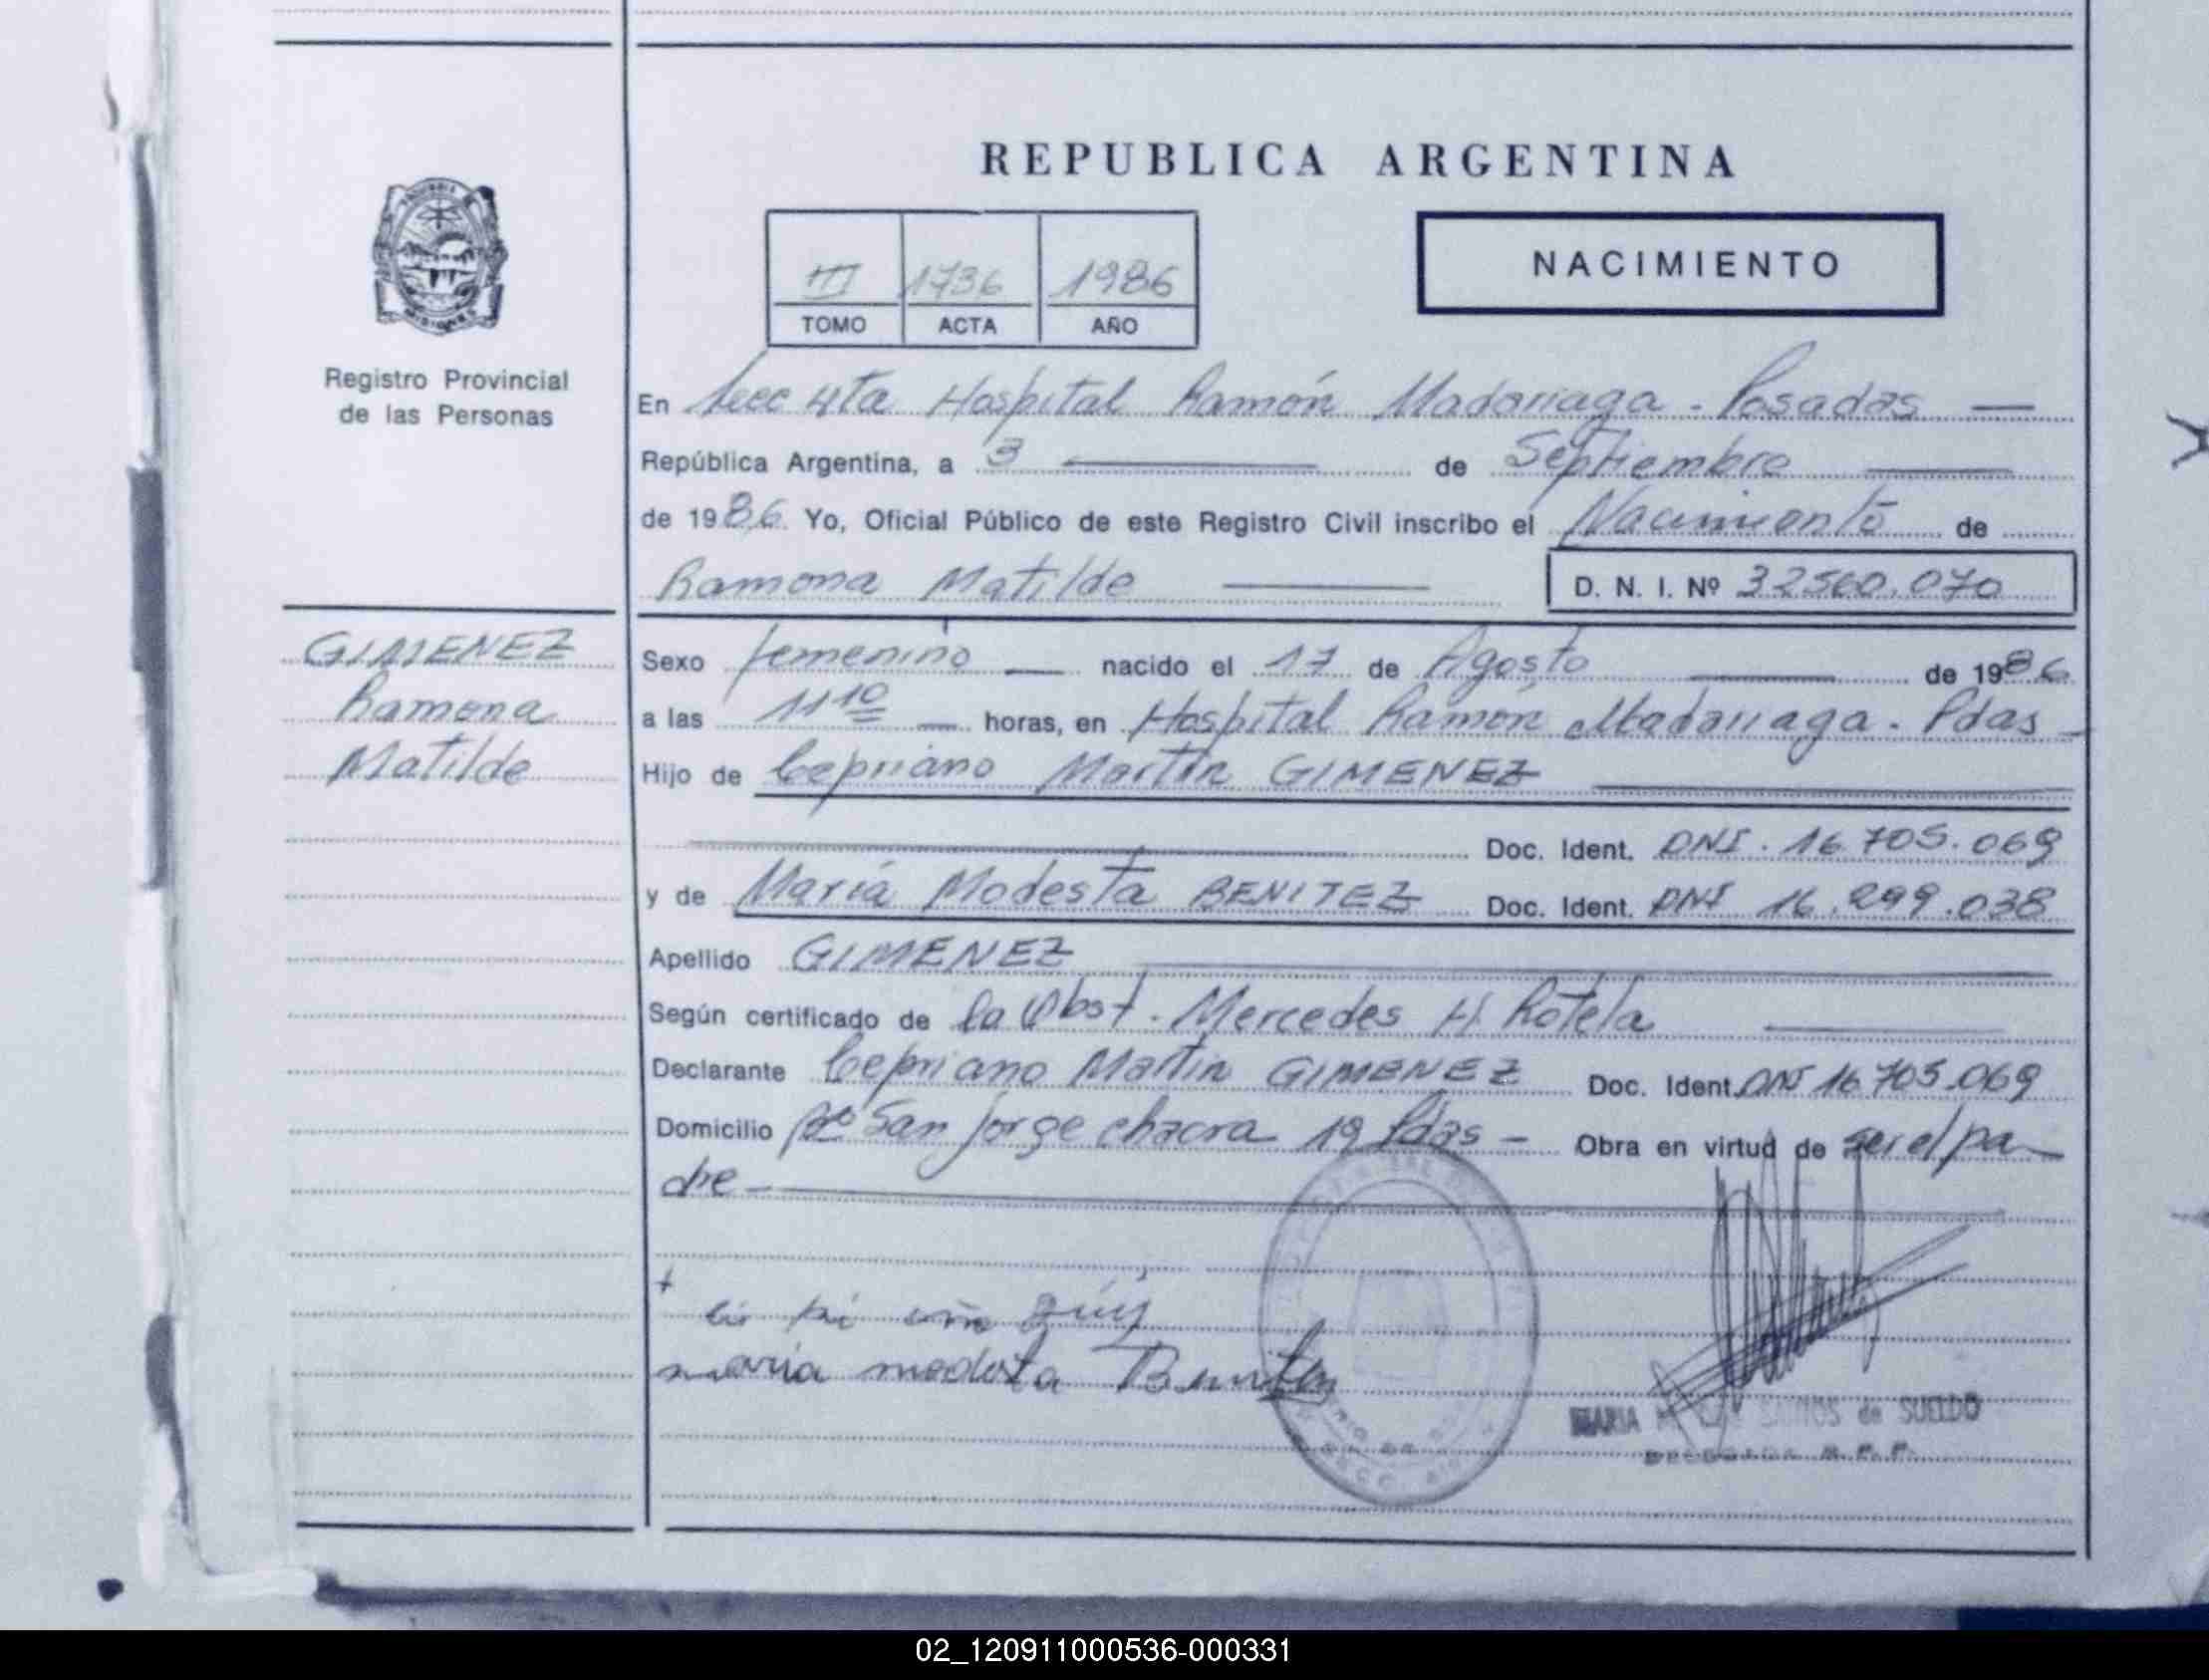 REPUBLICA ARGENTINA
NACIMIENTO
III 1736 1986
TOMO ACTA AÑO
MISIONES
Registro Provincial
de las Personas
En Secc 4ta Hospital Ramón Madariaga - Posadas —
República Argentina, a 3 — de Septiembre —
de 1986 Yo, Oficial Público de este Registro Civil inscribo el Nacimiento de
Ramona Matilde — D. N. I. Nº 32560.070
GIMENEZ
Ramona
Matilde
Sexo femenino — nacido el 17 de Agosto — de 1986
a las 11 10 — horas, en Hospital Ramón Madariaga - Pdas -
Hijo de Cepriano Martin GIMENEZ
Doc. Ident. DNI. 16.705.069
y de María Modesta BENITEZ Doc. Ident. DNI 16.299.038
Apellido GIMENEZ
Según certificado de la Obst. Mercedes H. Rotela
Declarante Cepriano Martin GIMENEZ Doc. Ident. DNI 16.705.069
Domicilio Bº San Jorge chacra 19 Pdas - Obra en virtud de ser el pa-
dre -
maria modesta Benitez
MARIA SANTOS de SUELDO
DELEGADA R.P.P.
02_120911000536-000331